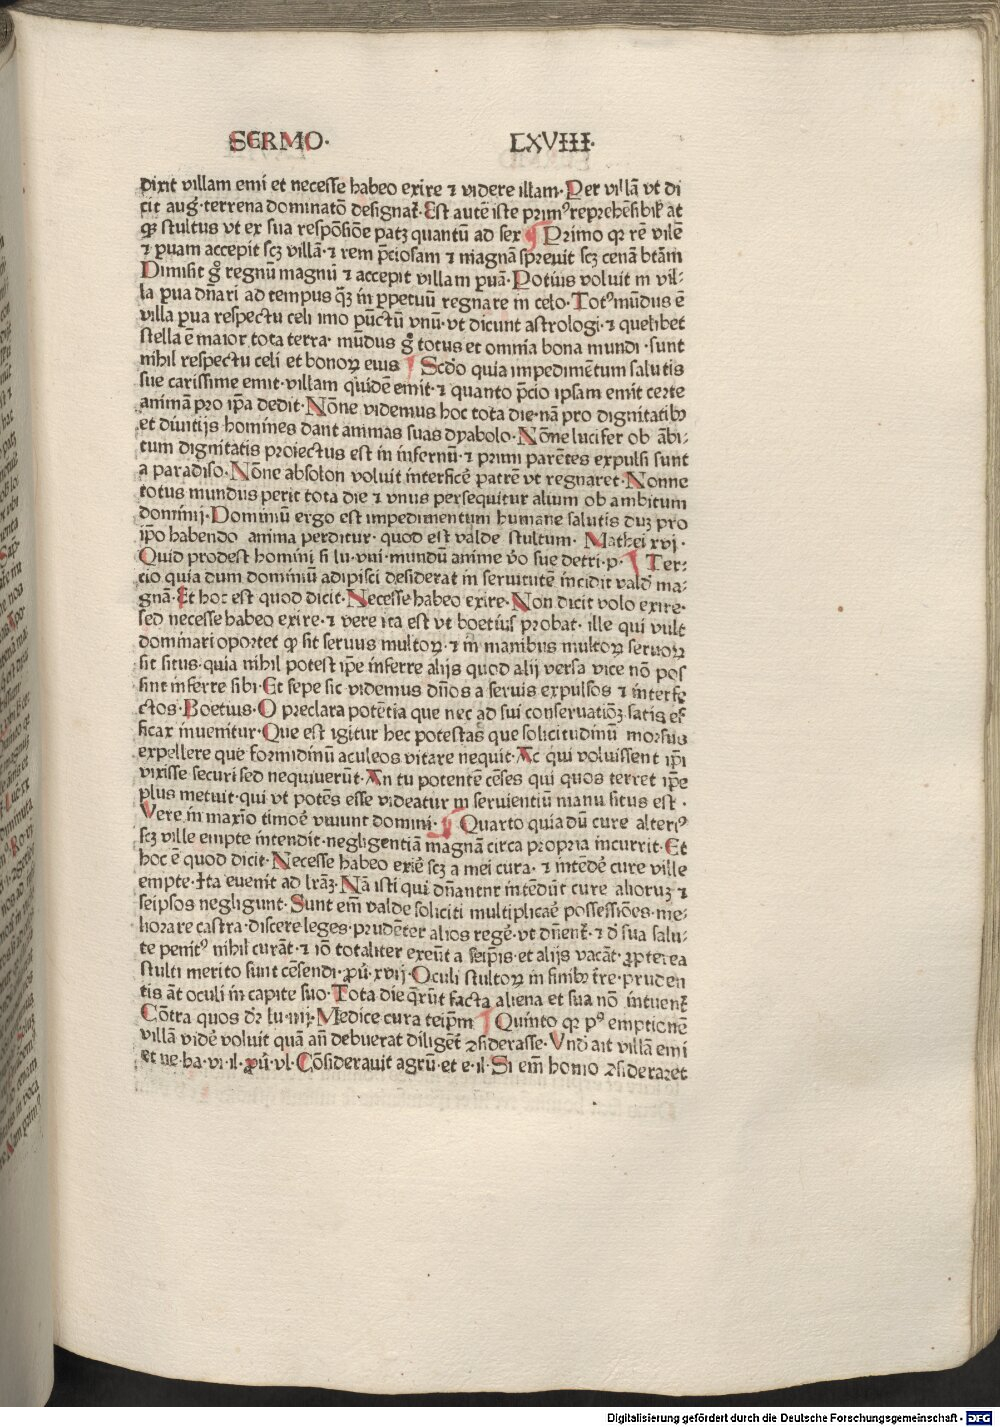 SERMO· LXVIII·
dixit villam emi et necesse habeo exire ⁊ videre illam· Per villā vt di
cit aug̃· terrena dominatō designat᷑· Est autē iste primꝰ reprehēsibil᷑ at
qꝫ stultus vt ex sua respōsiōe patꝫ quantū ad sex ¶ Primo qꝛ rē vilē
⁊ paruam accepit scꝫ villā· ⁊ rem p̄ciosam ⁊ magnā spreuit scꝫ cenā btām
Dimisit g̊ regnū magnū ⁊ accepit villam ꝑuā· Potius voluit in vil-
la ꝑua dn̄ari ad tempus qꝫ̄ in ꝑpetuū regnare in celo· Totꝰ mūdus ē
villa ꝑua respectu celi imo pūctū vnū· vt dicunt astrologi· ⁊ quelibet
stella ē maior tota terra· mūdus g̊ totus et omnia bona mundi ·sunt
nihil respectu celi et bonoꝝ eius ¶ Scd̓o quia impedimētum salutis
sue carissime emit· villam quidē emit· ⁊ quanto p̄cio ipsam emit certe
animā pro ip̄a dedit· Nōne videmus hoc tota die· nā pro dignitatibꝰ
et diuitijs homines dant animas suas dyabolo· Nōne lucifer ob ābi-
tum dignitatis proiectus est in infernū· ⁊ primi parētes expulsi sunt
a paradiso· Nōne absolon voluit interficē patrē vt regnaret· Nonne
totus mundus perit tota die ⁊ vnus persequitur alium ob ambitum
dominij· Dominiū ergo est impedimentum humane salutis dūꝫ pro
ip̄o habendo anima perditur· quod est valde stultum· Mathei xvj·
Quid prodest homini si lu·vni·mundū anime v̊o sue detri·p· ¶ Ter-
cio quia dum dominiū adipisci desiderat in seruitutē incidit vald̓ ma-
gnā· Et hoc est quod dicit· Necesse habeo exire· Non dicit volo exire·
sed necesse habeo exire· ⁊ vere ita est vt boetius probat· ille qui vult
dominari oportet ꝙ sit seruus multoꝝ· ⁊ in manibus multoꝝ seruoꝝ
sit situs· quia nihil potest ip̄e inferre alijs quod alij versa vice nō pos
sint inferre sibi· Et sepe sic videmus dn̄os a seruis expulsos ⁊ interfe
ctos· Boetius· O preclara potētia que nec ad sui conseruatiōꝫ satis ef
ficax inuenitur· Que est igitur hec potestas que solicitudinū morsus
expellere que formidinū aculeos vitare nequit· Ac qui voluissent ip̄i
vixisse securi sed nequiuerūt· An tu potentē cēses qui quos terret ip̄e
plus metuit· qui vt potēs esse videatur in seruientiū manu situs est ·
Vere in maxīo timoē viuunt domini· ¶ Quarto quia dū cure alteriꝰ
scꝫ ville empte intendit· negligentiā magnā circa propria incurrit· Et
hoc ē quod dicit· Necesse habeo exiē scꝫ a mei cura· ⁊ intēdē cure ville
empte· Ita euenit ad lrāꝫ· Nā isti qui dn̄antur intēdūt cure alioruꝫ ⁊
seipsos negligunt· Sunt em̄ valde soliciti multiplicaē possessiōes· me-
liorare castra· discere leges· prudēter alios regē· vt dn̄ent᷑· ⁊ d̓ sua salu-
te penitꝰ nihil curāt· ⁊ iō totaliter exeūt a seip̄is· et alijs vacāt· ꝓpterea
stulti merito sunt cēsendi· ꝓū· xvij· Oculi stultoꝝ in finibꝰ t̄re· pruden
tis āt oculi in capite suo· Tota die q̄rūt facta aliena et sua nō intuent᷑
Cōtra quos dr̄ lu·iiij· Medice cura teip̄m ¶ Quinto qꝛ pꝰ emptionē
villā vidē voluit quā an̄ debuerat diligēt᷑ ꝯsiderasse· Vnd̓ ait villā emi
et ne·ha·vi·il· ꝓū·vl· Cōsiderauit agrū· et e·il· Si em̄ homo ꝯsideraret
Digitalisierung gefördert durch die Deutsche Forschungsgemeinschaft - DFG